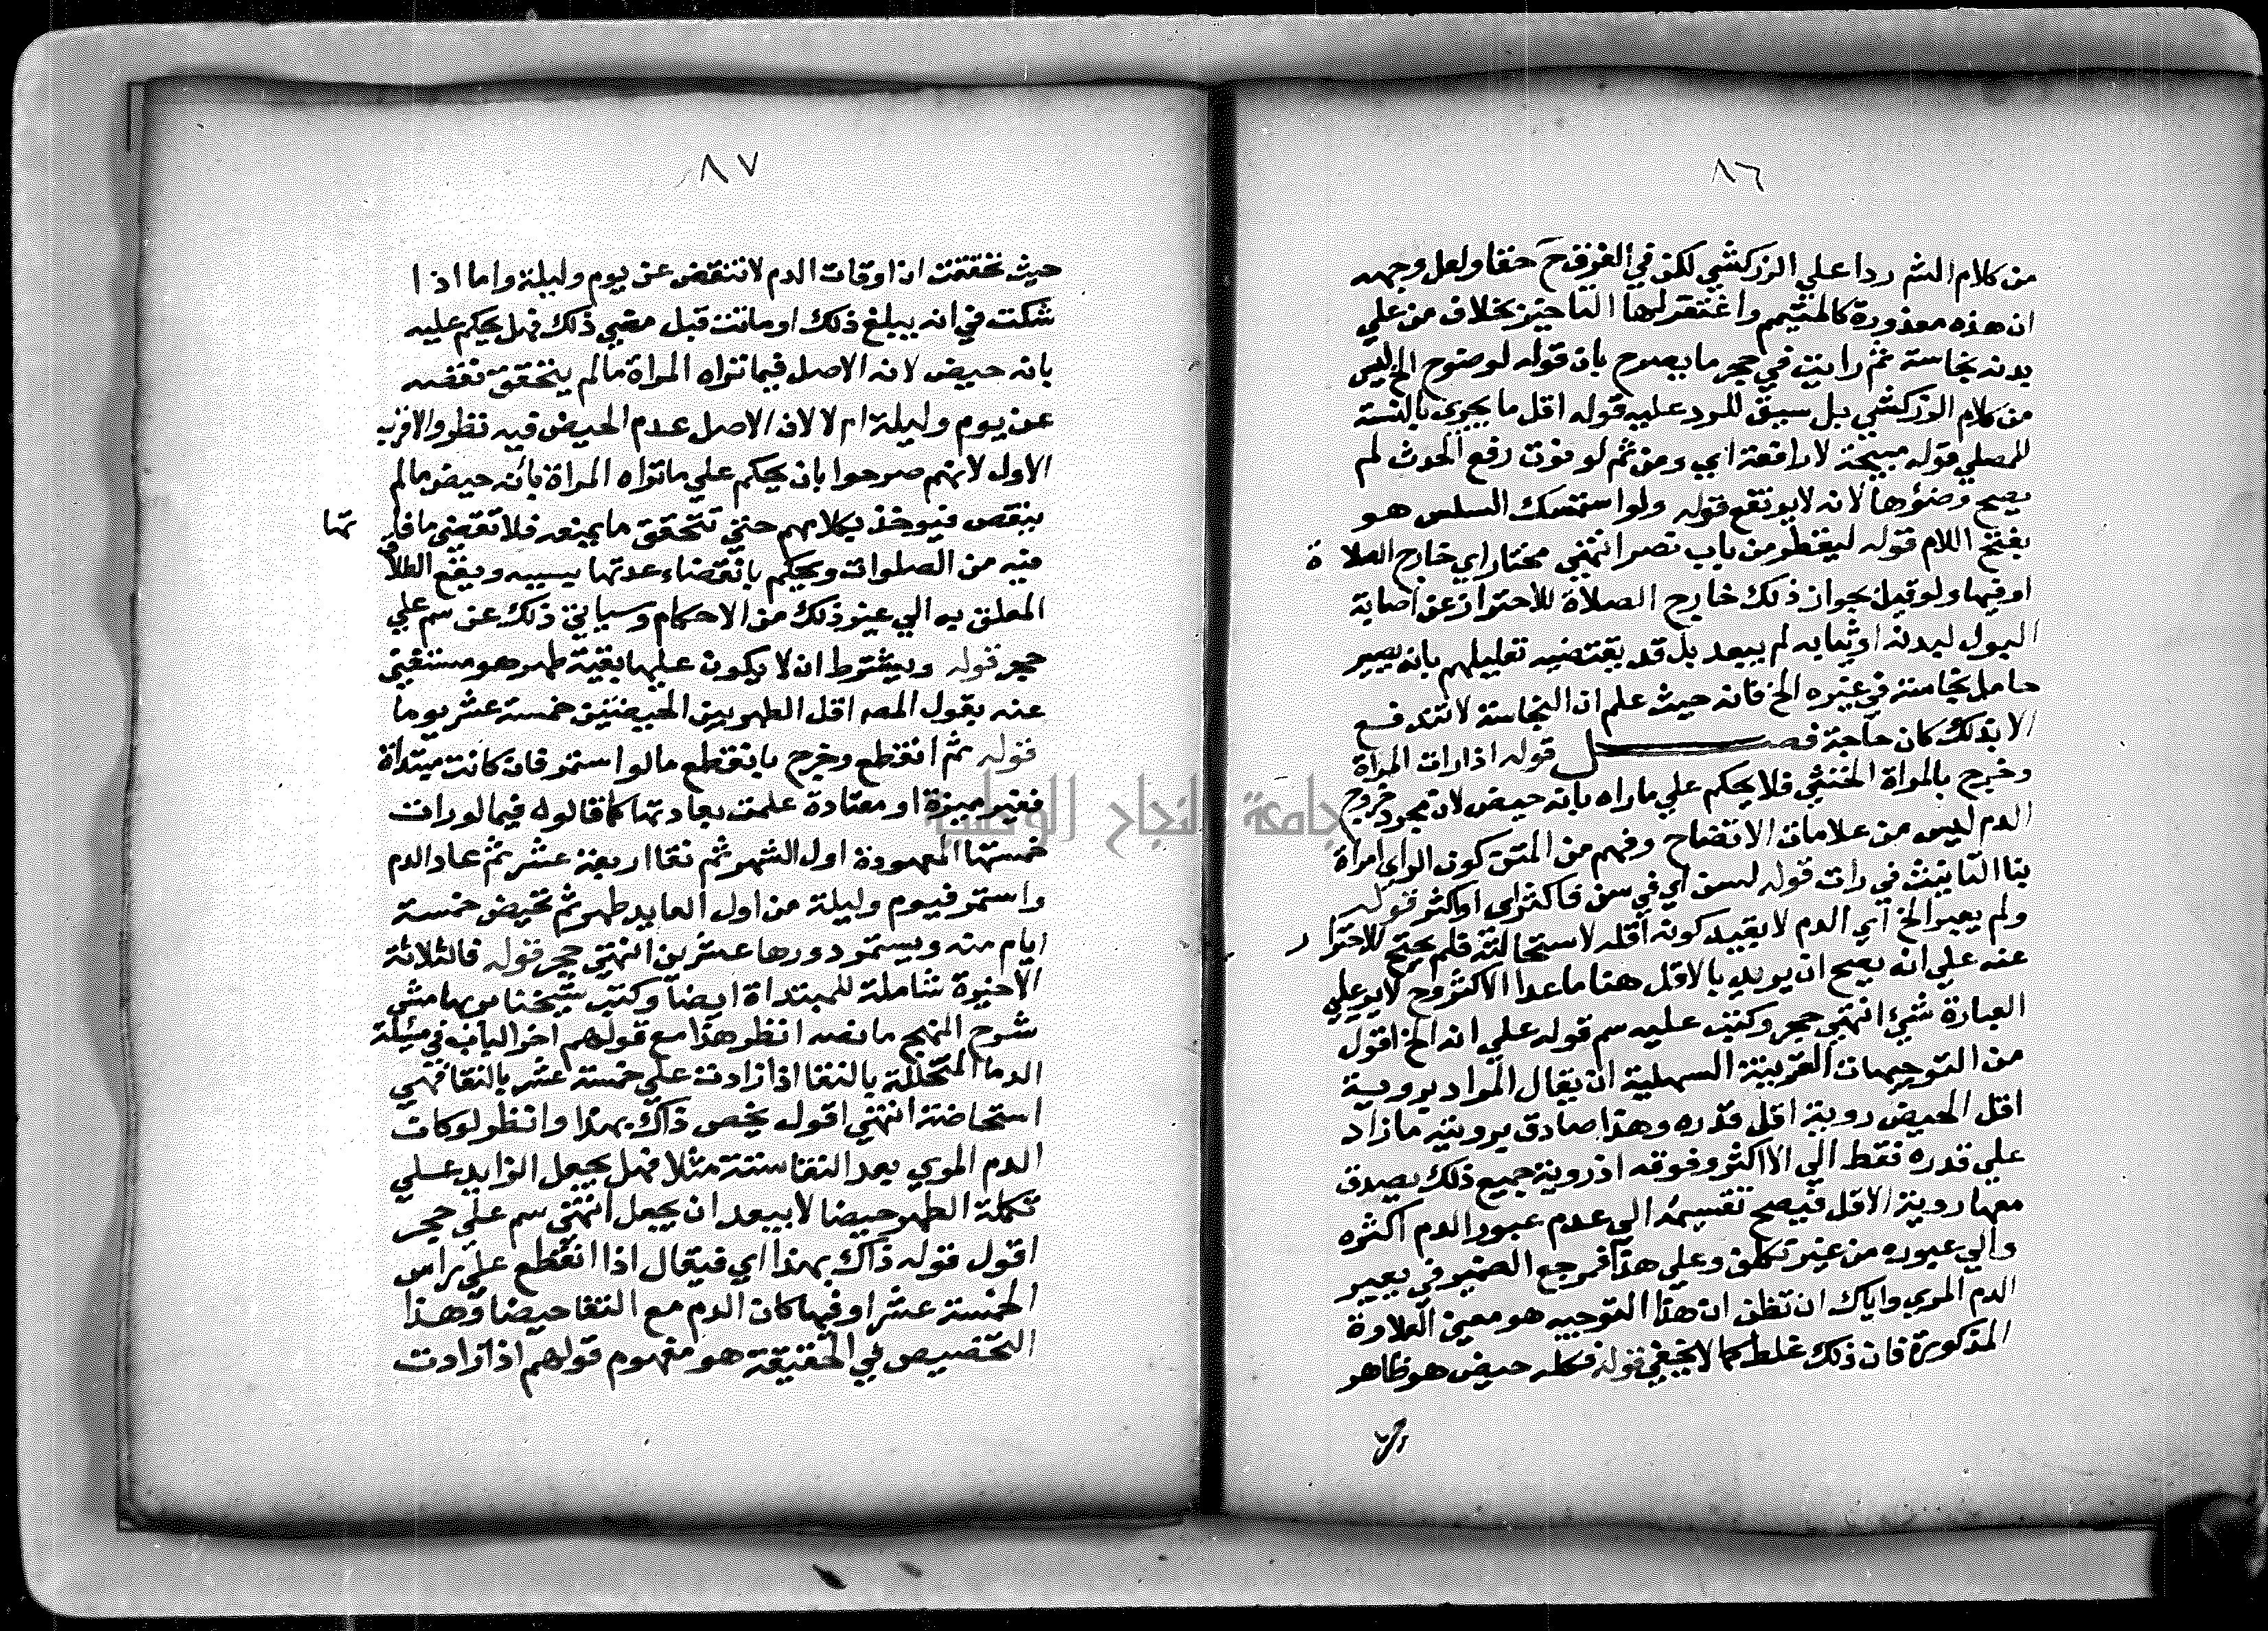 ٨٦
من كلام الشر ردا علي الزركشي لكن في الفرق ح خفا ولعل وجهه
ان هذه معذورة كالمتيمم واغتفر لها التاخير بخلاف من علي
بدنه نجاسة ثم رايت في حجر ما يصرح بان قوله لوضوح الخ ليس
من كلام الزركشي بل سيق للرد عليه قوله اقل ما يجزي بالنسبة
للمصلي قوله مبيحة لا رافعة اي ومن ثم لو نوت رفع الحدث لم
يصح وضوءها لانه لا يرتفع قوله ولو استمسك السلس هو
بفتح اللام قوله ليقطر من باب نصر انتهي مختار اي خارج الصلاة
او فيها ولو قيل بجواز ذلك خارج الصلاة للاحتراز عن اصابة
البول لبدنه او ثيابه لم يبعد بل قد يقتضيه تعليلهم بانه يصير
حامل نجاسة في غيره الخ فانه حيث علم ان النجاسة لا تندفع
الا بذلك كان حاجة فصــل قوله اذا رات المراة
وخرج بالمراة الخنثي فلا يحكم علي ما راه بانه حيض لان مجرد خروج
الدم ليس من علامات الاتضاح وفهم من المتن كون الراي امراة
بتا التانيث في رات قوله لسن اي في سن فاكثر اي او اكثر قوله
ولم يعبر الخ اي الدم لا بقيد كونه اقله لاستحالته فلم يحتج للاحتراز
عنه علي انه يصح ان يريد بالاقل هنا ما عدا الاكثر وح لا يرد علي
العبارة شيء انتهي حجر وكتب عليه سم قوله علي انه الخ اقول
من التوجيهات القريبة السهلة ان يقال المراد بروية
اقل الحيض روية اقل قدره وهذا صادق بروية ما زاد
علي قدره فقط الي الاكثر وفوقه اذ روية جميع ذلك يصدق
معها روية الاقل فيصح تقسيمه الي عدم عبور الدم اكثره
والي عبوره من غير تكلف وعلي هذا فمرجع الضمير في يعبر
الدم المري واياك ان تظن ان هذا التوجيه هو معني العلاوة
المذكورة فان ذلك غلط كما لا يخفي قوله فكله حيض هو ظاهر
٨٧
حيث تحققت ان اوقات الدم لا تنقص عن يوم وليلة واما اذا
شكت في انه يبلغ ذلك او ماتت قبل مضي ذلك فهل يحكم عليه
بانه حيض لانه الاصل فيما تراه المراة ما لم يتحقق نقصه
عن يوم وليلة ام لا لان الاصل عدم الحيض فيه نظر والاقرب
الاول لانهم صرحوا بان يحكم علي ما تراه المراة بانه حيض ما لم
ينقص فيوخذ بكلامهم حتي تتحقق ما يمنعه فلا تقضي ما فاتها
فيه من الصلوات ويحكم بانقضاء عدتها بسببه ويقع الطلاق
المعلق به الي غير ذلك من الاحكام وسياتي ذلك عن سم علي
حجر قوله ويشترط ان لا يكون عليها بقية طهر هو مستغني
عنه بقول المصه اقل الطهر بين الحيضتين خمسة عشر يوما
قوله ثم انقطع وخرج بانقطع ما لو استمر فان كانت مبتداة
فغير مميزة او معتادة علمت بعادتها كما قالوه فيما لو رات
خمستها المعهودة اول الشهر ثم نقا اربعة عشر ثم عاد الدم
واستمر فيوم وليلة من اول العايد طهر ثم تحيض خمسة
ايام منه ويستمر دورها عشرين انتهي حجر قوله فالثلاثة
الاخيرة شاملة للمبتداة ايضا وكتب شيخنا بهامش
شرح المنهج ما نصه انظر هذا مع قولهم اخر الباب في مسئلة
الدما المتخللة بالنقا اذا زادت علي خمسة عشر بالنقا فهي
استحاضة انتهي اقول يخص ذاك بهذا وانظر لو كات
الدم المري بعد النقا ستة مثلا فهل يجعل الزايد علي
تكملة الطهر حيضا لا يبعد ان يجعل انتهي سم علي حجر
اقول قوله ذاك بهذا اي فيقال اذا انقطع علي راس
الخمسة عشر او فيها كان الدم مع النقا حيضا وهذا
التخصيص في الحقيقة هو مفهوم قولهم اذا زادت
جامعة النجاح الوطنية